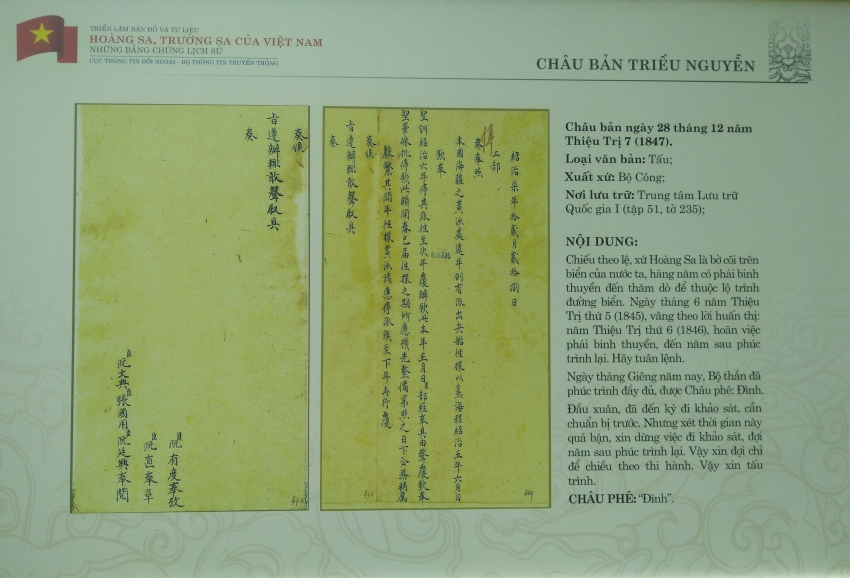 TRIỂN LÃM BẢN ĐỒ VÀ TƯ LIỆU
HOÀNG SA, TRƯỜNG SA CỦA VIỆT NAM
NHỮNG BẰNG CHỨNG LỊCH SỬ
CỤC THÔNG TIN ĐỐI NGOẠI - BỘ THÔNG TIN TRUYỀN THÔNG
CHÂU BẢN TRIỀU NGUYỄN
紹治柒年拾貳月貳拾捌日
工部
奏奉照
本國海疆之黃沙處遞年例有派出兵船往探以熟海程紹治五年六月日
欽奉
聖訓紹治六年停其派往至次年覆辦欽此本年正月日臣部經奉具由聲覆欽奉
聖筆硃批停欽此
旨遵辦輒敢聲叙具
奏
奏候
旨遵辦輒敢聲叙具
奏
臣阮有度奉攷
臣阮直奉草
臣阮文典張國用阮廷興奉閱
Châu bản ngày 28 tháng 12 năm
Thiệu Trị 7 (1847).
Loại văn bản: Tấu;
Xuất xứ: Bộ Công;
Nơi lưu trữ: Trung tâm Lưu trữ
Quốc gia I (tập 51, tờ 235);
NỘI DUNG:
Chiếu theo lệ, xứ Hoàng Sa là bờ cõi trên
biển của nước ta, hàng năm có phái binh
thuyền đến thăm dò để thuộc lộ trình
đường biển. Ngày tháng 6 năm Thiệu
Trị thứ 5 (1845), vâng theo lời huấn thị:
năm Thiệu Trị thứ 6 (1846), hoãn việc
phái binh thuyền, đến năm sau phúc
trình lại. Hãy tuân lệnh.
Ngày tháng Giêng năm nay, Bộ thần đã
phúc trình đầy đủ, được Châu phê: Đình.
Đầu xuân, đã đến kỳ đi khảo sát, cần
chuẩn bị trước. Nhưng xét thời gian này
quá bận, xin dừng việc đi khảo sát, đợi
năm sau phúc trình lại. Vậy xin đợi chỉ
để chiếu theo thi hành. Vậy xin tấu
trình.
CHÂU PHÊ: “Đình”.